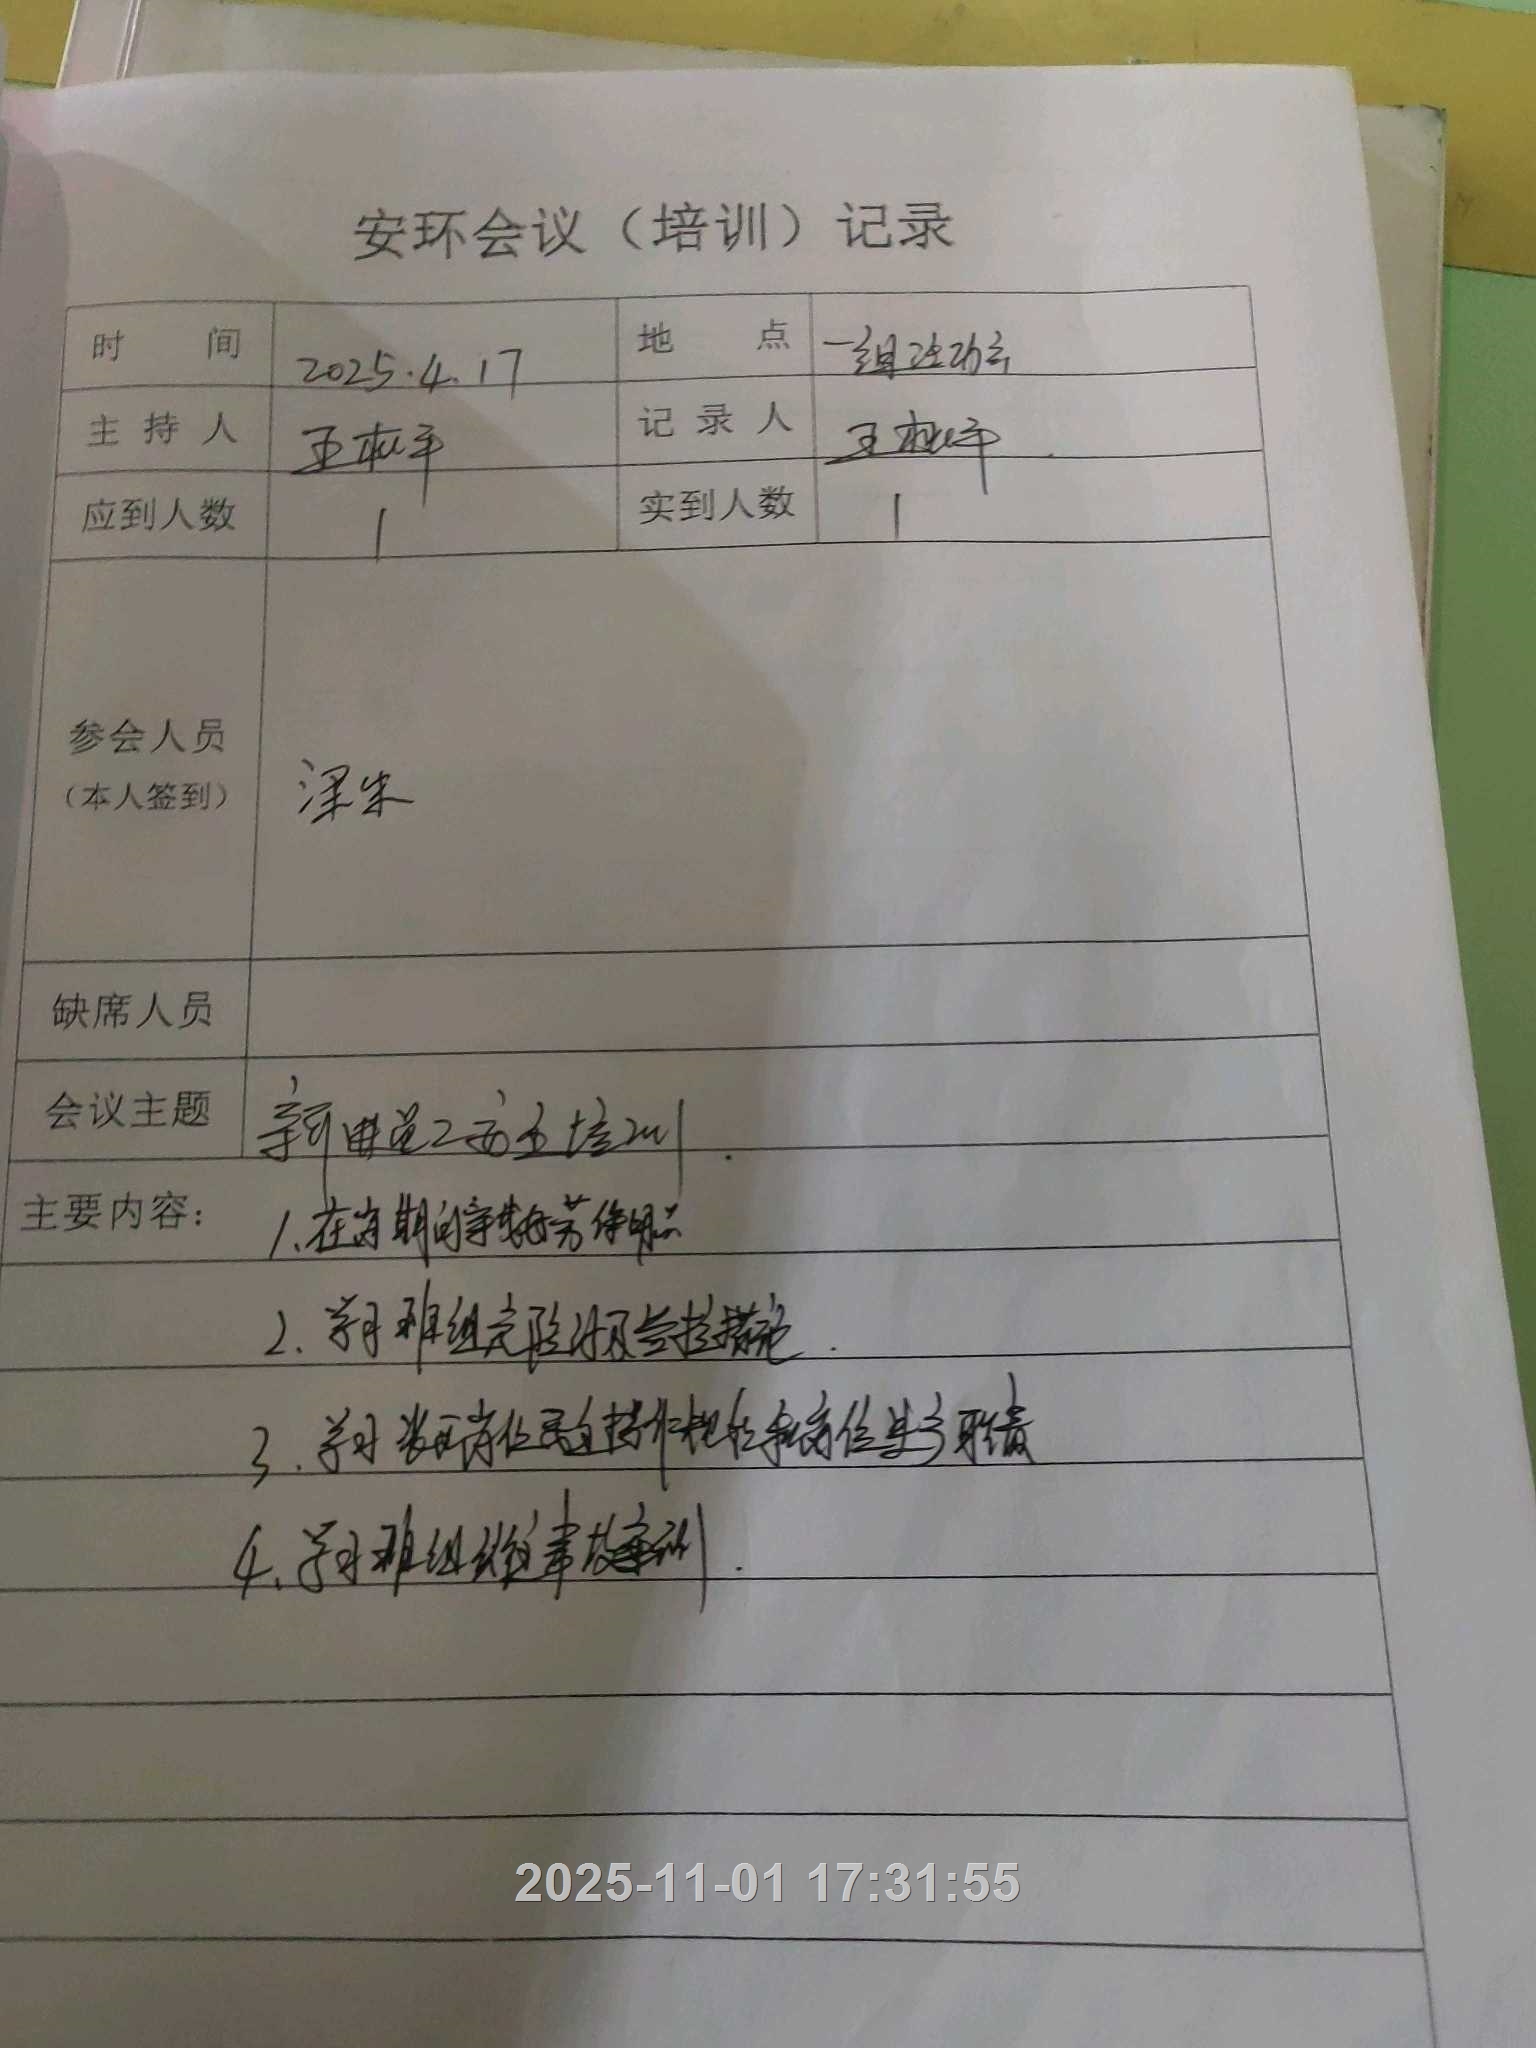 安环会议（培训）记录
时 间 2025.4.17 地 点 一组活动室
主 持 人 王 平 记 录 人 王 平
应到人数 1 实到人数 1
参会人员
（本人签到）
缺席人员
会议主题 新进员工安全培训.
主要内容： 1.在 期 劳保用品
2.学习班组危险 及管控措施.
3.学习 岗位 操作规 和岗位 职责
4.学习班组 事故 训.
2025-11-01 17:31:55